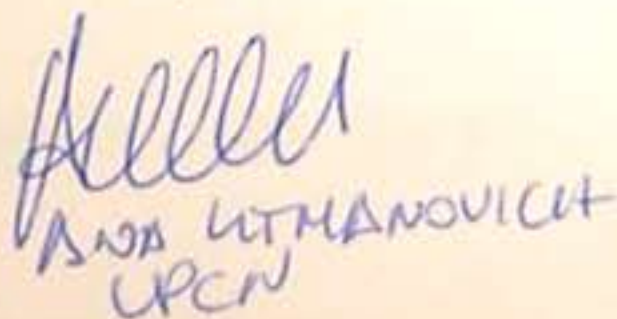 ANA LITMANOVICH
UPCN